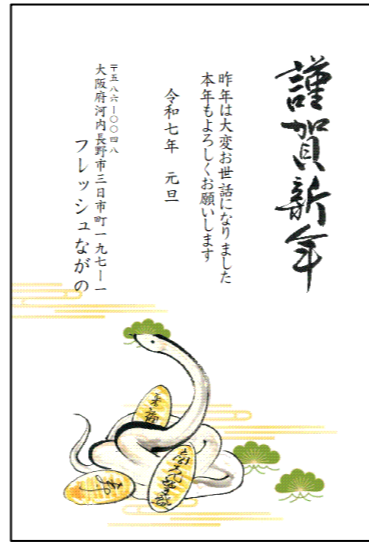 謹賀新年
昨年は大変お世話になりました
本年もよろしくお願いします
令和七年　元旦
〒五八六ー〇〇四八
大阪府河内長野市三日市町一九七ー一
フレッシュながの